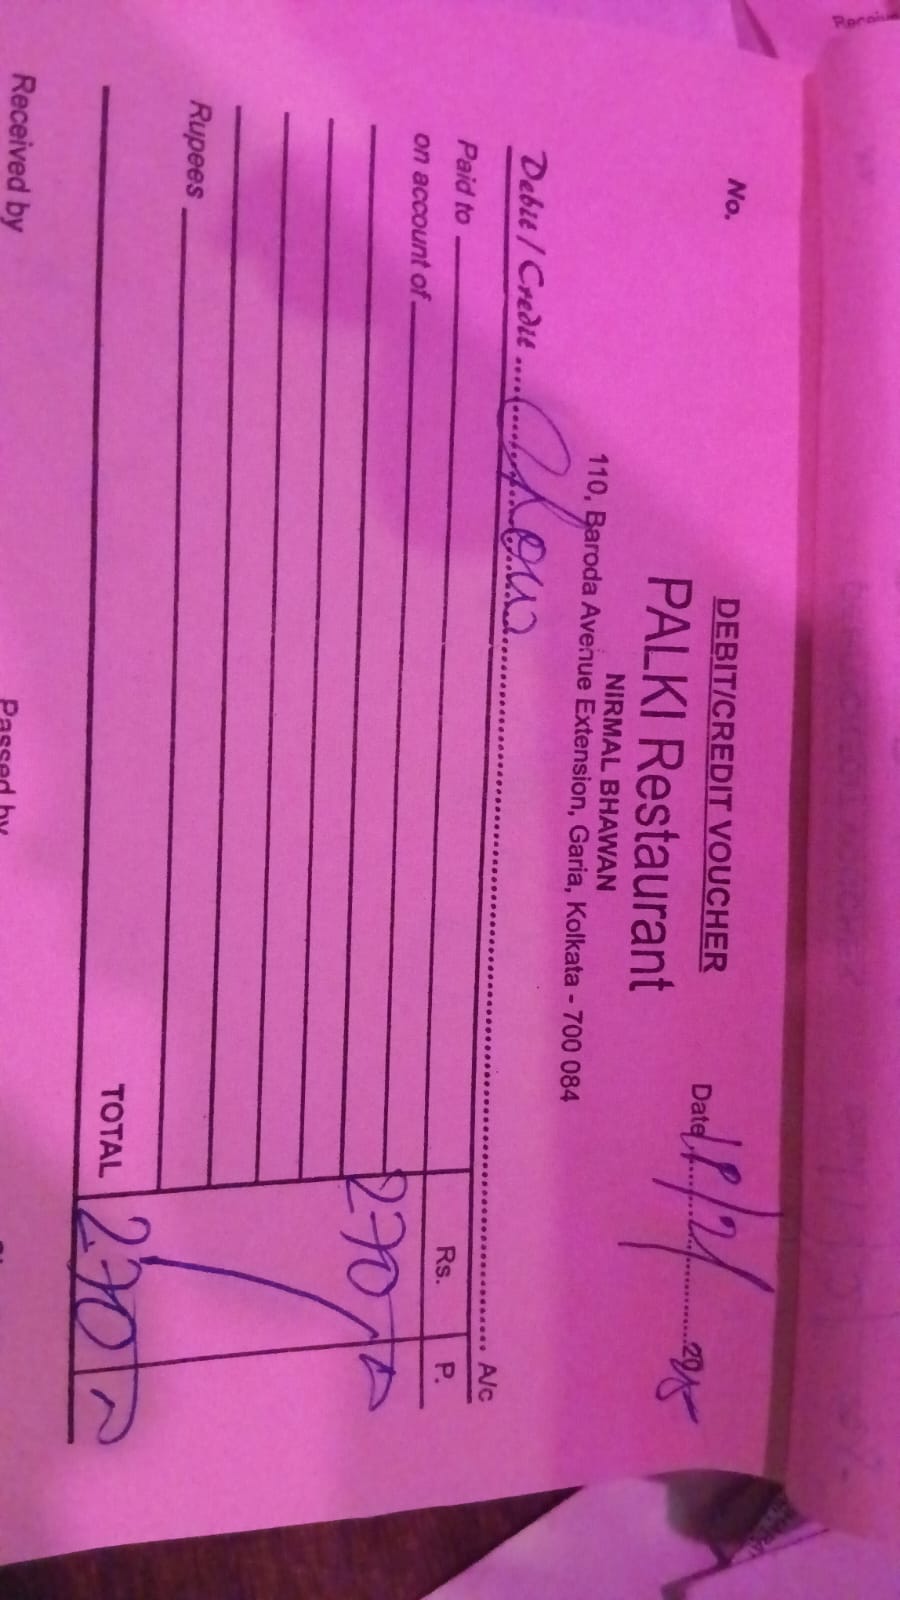 No.
DEBIT/CREDIT VOUCHER
PALKI Restaurant
Date
NIRMAL BHAWAN
110, Baroda Avenue Extension, Garia, Kolkata - 700 084
Debit / Credit A/c
Paid to Rs. P.
on account of
270
Rupees
TOTAL 270
Received by Passed by